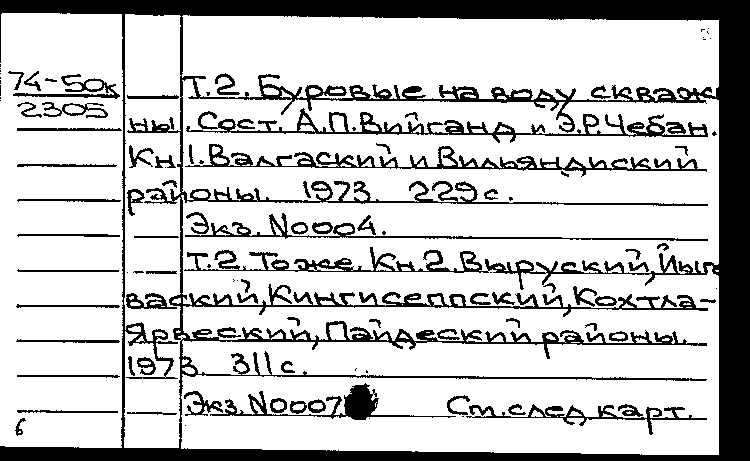 74-50к Т.2. Буровые на воду скваж
2305 ны. Сост. А.П.Вийганд и Э.Р.Чебан.
Кн.1. Валгаский и Вильяндиский
районы. 1973. 229 с.
Экз. N0004.
Т.2. То же. Кн.2. Выруский, Йыге
ваский, Кингисеппский, Кохтла-
Ярвеский, Пайдеский районы.
1973. 311 с.
Экз. N0007 См. след. карт.
6